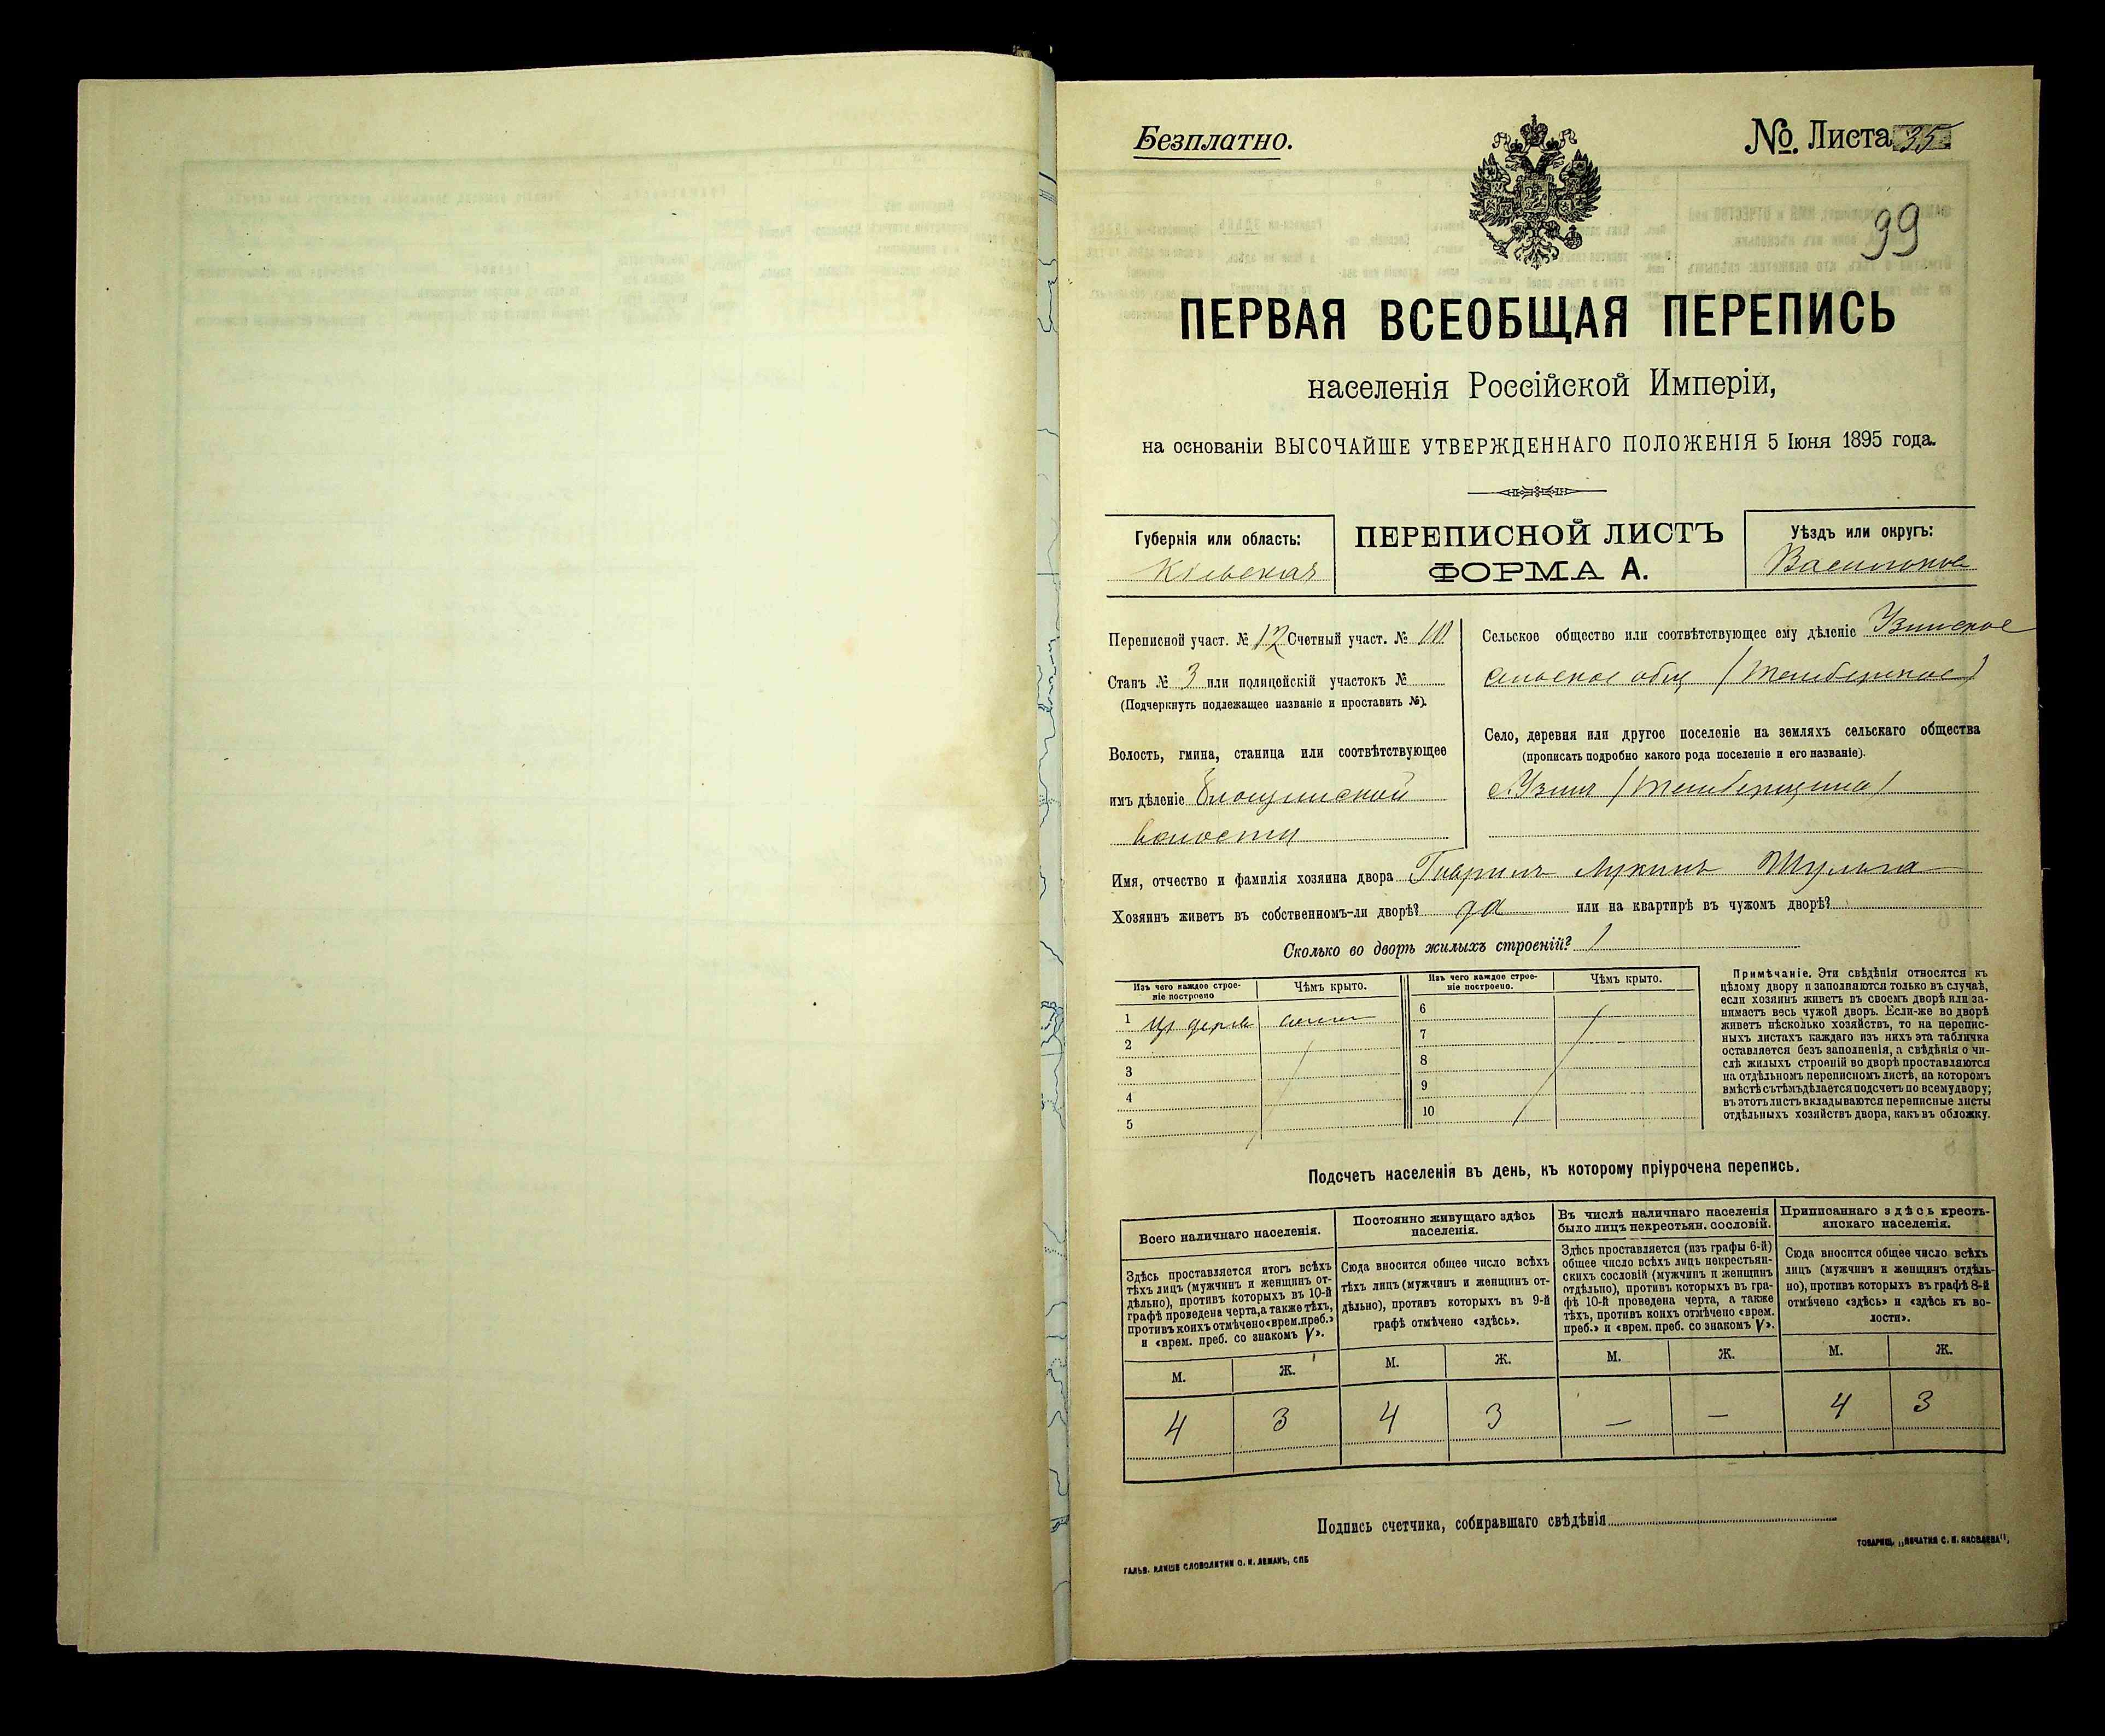 Безплатно.
№. Листа 35
99
ПЕРВАЯ ВСЕОБЩАЯ ПЕРЕПИСЬ
населенія Россійской Имперіи,
на основаніи ВЫСОЧАЙШЕ УТВЕРЖДЕННАГО ПОЛОЖЕНІЯ 5 Іюня 1895 года.
Губернія или область:
Кіевская
ПЕРЕПИСНОЙ ЛИСТЪ
ФОРМА А.
Уѣздъ или округъ:
Переписной участ. № 12 Счетный участ. №
Станъ № 3 или полицейскій участокъ №
(Подчеркнуть подлежащее названіе и проставить №).
Волость, гмина, станица или соотвѣтствующее
имъ дѣленіе
волости
Сельское общество или соотвѣтствующее ему дѣленіе Узинское
сельское общ
Село, деревня или другое поселеніе на земляхъ сельскаго общества
(прописать подробно какого рода поселеніе и его названіе).
с. Узин
Имя, отчество и фамилія хозяина двора Гаврилъ Лукинъ Шульга
Хозяинъ живетъ въ собственномъ-ли дворѣ? да или на квартирѣ въ чужомъ дворѣ?
Сколько во дворѣ жилыхъ строеній? 1
Изъ чего каждое строе-
ніе построено
Чѣмъ крыто.
Изъ чего каждое строе-
ніе построено.
Чѣмъ крыто.
1 из дерев
2
3
4
5
6
7
8
9
10
Примѣчаніе. Эти свѣдѣнія относятся къ
цѣлому двору и заполняются только въ случаѣ,
если хозяинъ живетъ въ своемъ дворѣ или за-
нимаетъ весь чужой дворъ. Если-же во дворѣ
живетъ нѣсколько хозяйствъ, то на перепис-
ныхъ листахъ каждаго изъ нихъ эта табличка
оставляется безъ заполненія, а свѣдѣнія о чи-
слѣ жилыхъ строеній во дворѣ проставляются
на отдѣльномъ переписномъ листѣ, на которомъ
вмѣстѣ съ тѣмъ дѣлается подсчетъ по всему двору;
въ этотъ листъ вкладываются переписные листы
отдѣльныхъ хозяйствъ двора, какъ въ обложку.
Подсчетъ населенія въ день, къ которому пріурочена перепись.
Всего наличнаго населенія.
Здѣсь проставляется итогъ всѣхъ
тѣхъ лицъ (мужчинъ и женщинъ от-
дѣльно), противъ которыхъ въ 10-й
графѣ проведена черта, а также тѣхъ,
противъ коихъ отмѣчено «врем. преб.»
и «врем. преб. со знакомъ V».
Постоянно живущаго здѣсь
населенія.
Сюда вносится общее число всѣхъ
тѣхъ лицъ (мужчинъ и женщинъ от-
дѣльно), противъ которыхъ въ 9-й
графѣ отмѣчено «здѣсь».
Въ числѣ наличнаго населенія
было лицъ некрестьян. сословій.
Здѣсь проставляется (изъ графы 6-й)
общее число всѣхъ лицъ некрестьян-
скихъ сословій (мужчинъ и женщинъ
отдѣльно), противъ которыхъ въ гра-
фѣ 10-й проведена черта, а также
тѣхъ, противъ коихъ отмѣчено «врем.
преб.» и «врем. преб. со знакомъ V».
Приписаннаго здѣсь кресть-
янскаго населенія.
Сюда вносится общее число всѣхъ
лицъ (мужчинъ и женщинъ отдѣль-
но), противъ которыхъ въ графѣ 8-й
отмѣчено «здѣсь» и «здѣсь къ во-
лости».
М. Ж. М. Ж. М. Ж. М. Ж.
4 3 4 3 — — 4 3
Подпись счетчика, собиравшаго свѣдѣнія
ГАЛЬВ. КЛИШЕ СЛОВОЛИТНИ О. И. ЛЕМАНЪ, СПБ
ТОВАРИЩ. „ПЕЧАТНЯ С. П. ЯКОВЛЕВА",